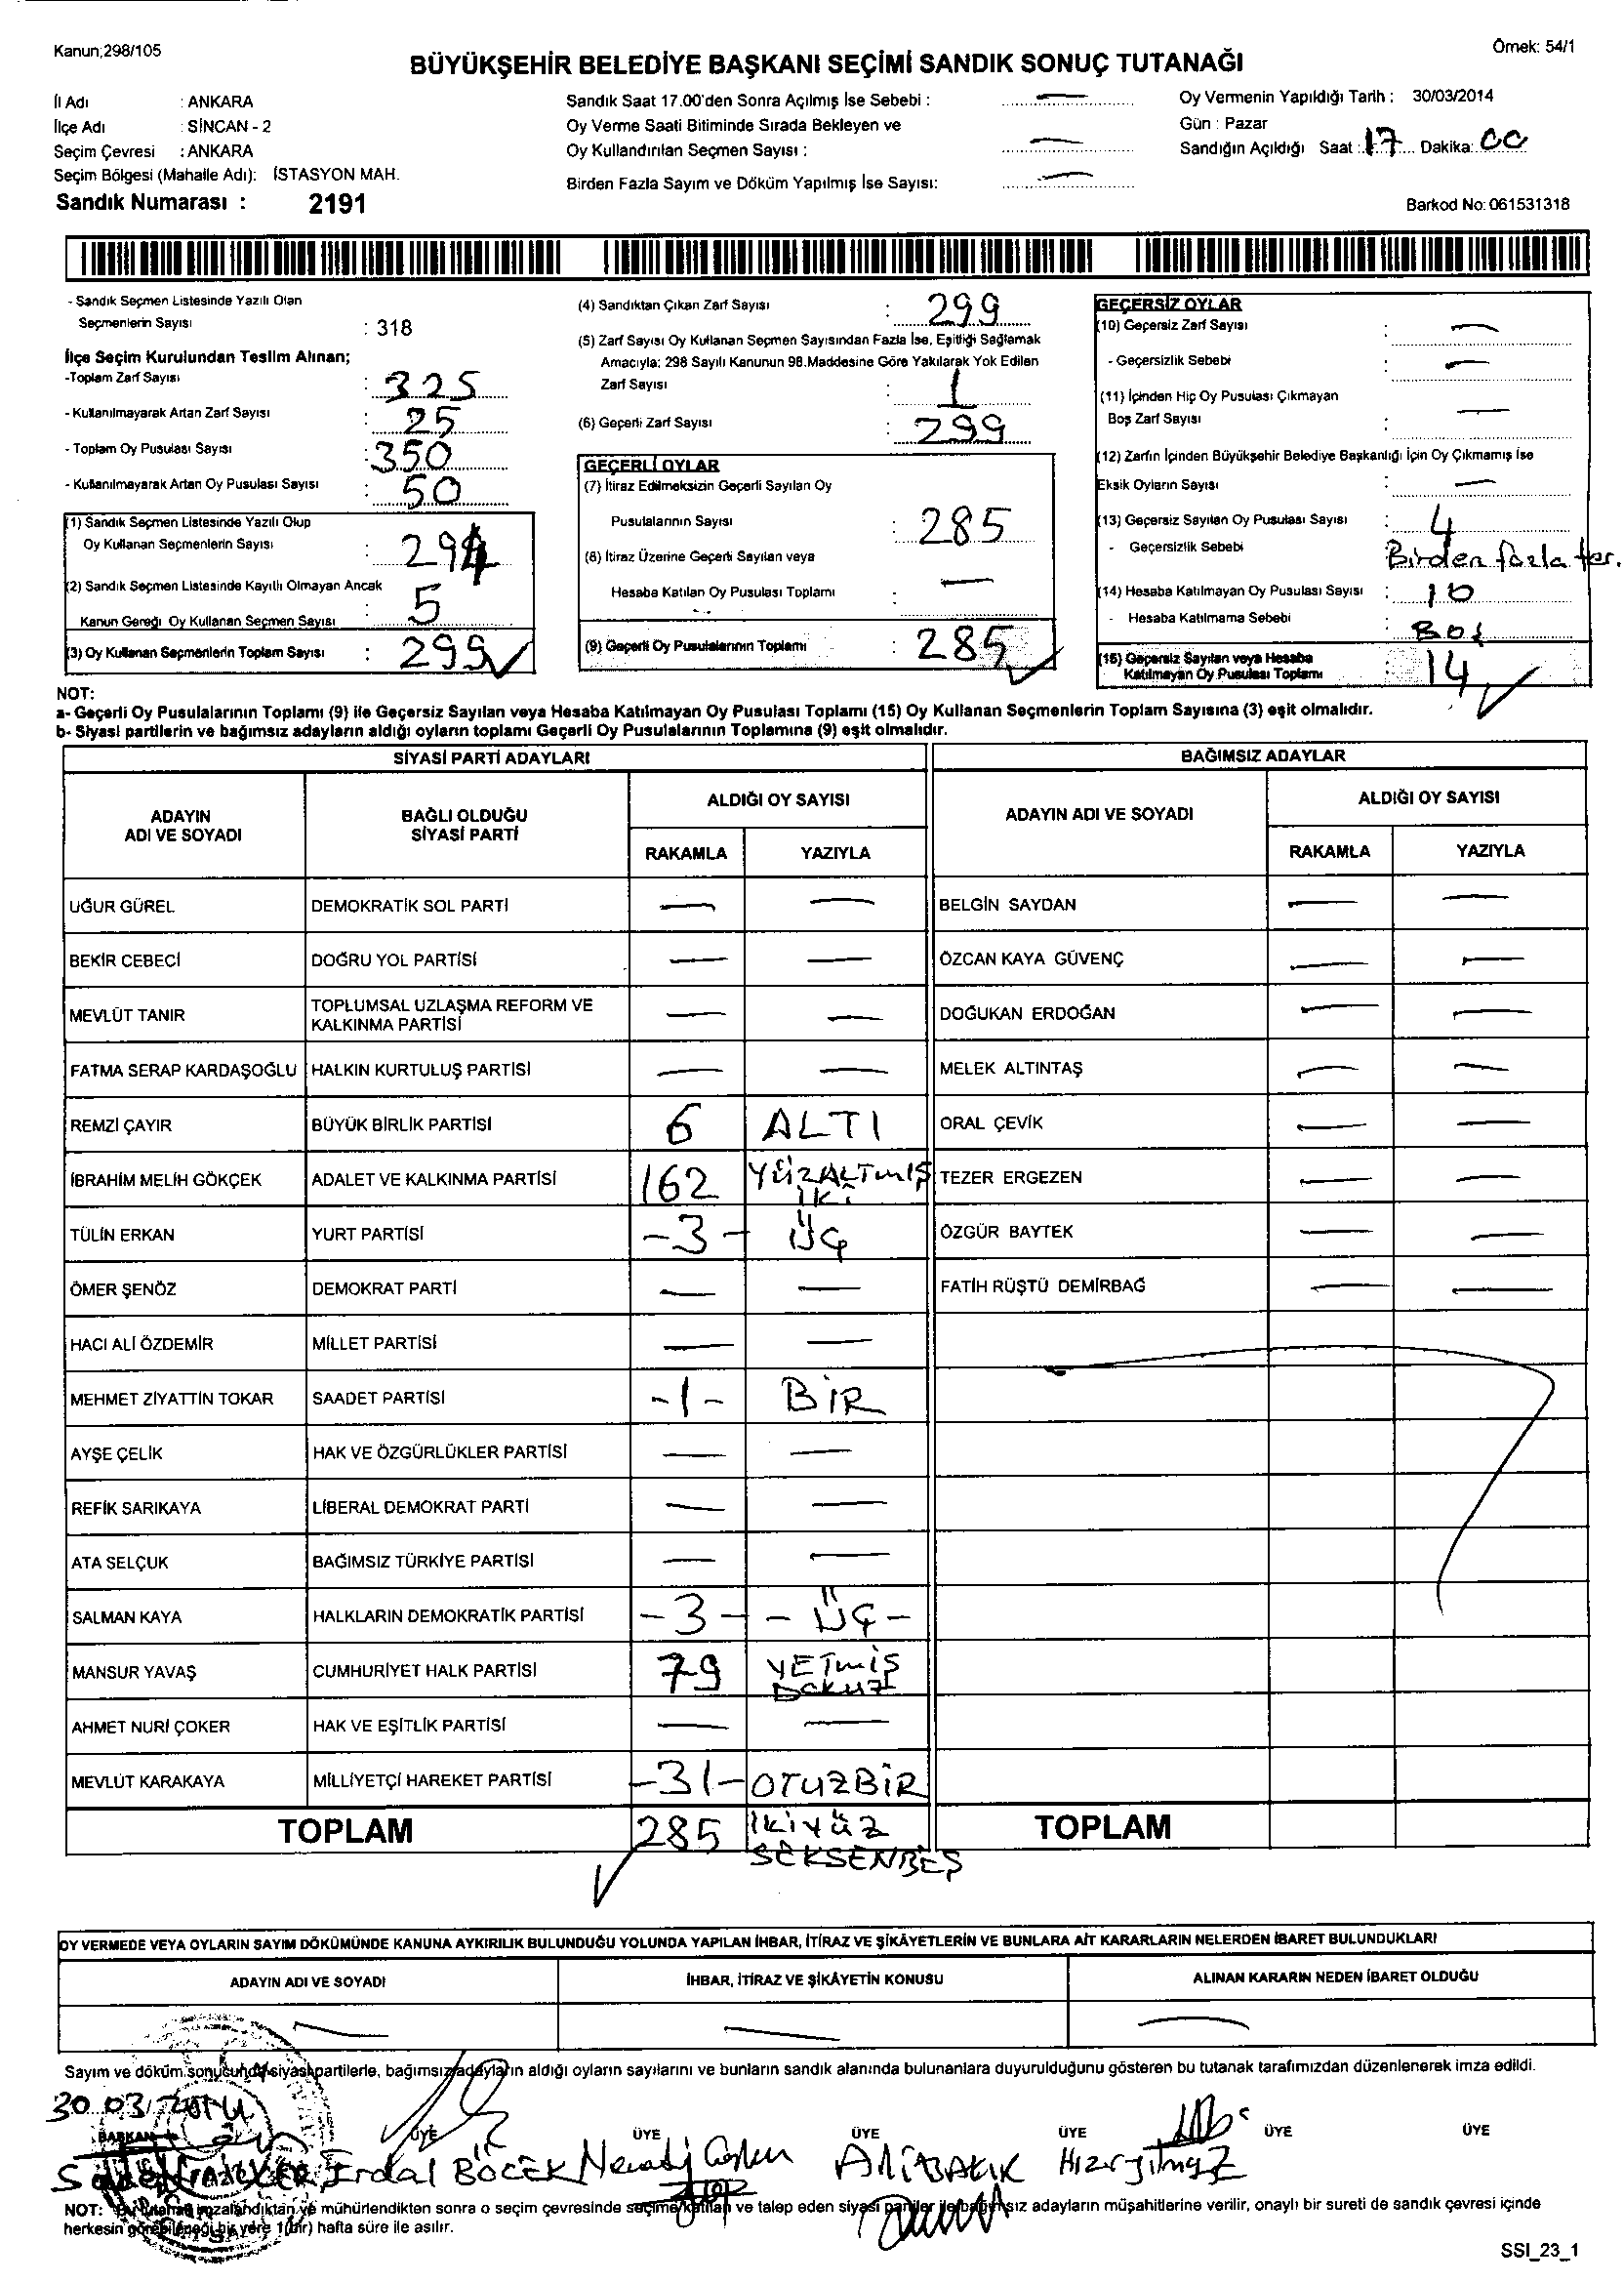 Kanun;298/105
Örnek: 54/1
BÜYÜKŞEHİR BELEDİYE BAŞKANI SEÇİMİ SANDIK SONUÇ TUTANAĞI
İl Adı : ANKARA
İlçe Adı : SİNCAN - 2
Seçim Çevresi : ANKARA
Seçim Bölgesi (Mahalle Adı): İSTASYON MAH.
Sandık Numarası : 2191
Sandık Saat 17.00'den Sonra Açılmış İse Sebebi : —
Oy Verme Saati Bitiminde Sırada Bekleyen ve
Oy Kullandırılan Seçmen Sayısı : —
Birden Fazla Sayım ve Döküm Yapılmış İse Sayısı: —
Oy Vermenin Yapıldığı Tarih : 30/03/2014
Gün : Pazar
Sandığın Açıldığı Saat : 17 Dakika: 00
Barkod No: 061531318
- Sandık Seçmen Listesinde Yazılı Olan
Seçmenlerin Sayısı : 318
İlçe Seçim Kurulundan Teslim Alınan;
-Toplam Zarf Sayısı : 325
- Kullanılmayarak Artan Zarf Sayısı : 25
- Toplam Oy Pusulası Sayısı : 350
- Kullanılmayarak Artan Oy Pusulası Sayısı : 50
(1) Sandık Seçmen Listesinde Yazılı Olup
Oy Kullanan Seçmenlerin Sayısı : 294
(2) Sandık Seçmen Listesinde Kayıtlı Olmayan Ancak
Kanun Gereği Oy Kullanan Seçmen Sayısı : 5
(3) Oy Kullanan Seçmenlerin Toplam Sayısı : 299
(4) Sandıktan Çıkan Zarf Sayısı : 299
(5) Zarf Sayısı Oy Kullanan Seçmen Sayısından Fazla İse, Eşitliği Sağlamak
Amacıyla; 298 Sayılı Kanunun 98.Maddesine Göre Yakılarak Yok Edilen
Zarf Sayısı : 1
(6) Geçerli Zarf Sayısı : 299
GEÇERLİ OYLAR
(7) İtiraz Edilmeksizin Geçerli Sayılan Oy
Pusulalarının Sayısı : 285
(8) İtiraz Üzerine Geçerli Sayılan veya
Hesaba Katılan Oy Pusulası Toplamı : —
(9) Geçerli Oy Pusulalarının Toplamı : 285
GEÇERSİZ OYLAR
(10) Geçersiz Zarf Sayısı : —
- Geçersizlik Sebebi : —
(11) İçinden Hiç Oy Pusulası Çıkmayan
Boş Zarf Sayısı : —
(12) Zarfın İçinden Büyükşehir Belediye Başkanlığı İçin Oy Çıkmamış İse
Eksik Oyların Sayısı : —
(13) Geçersiz Sayılan Oy Pusulası Sayısı : 4
- Geçersizlik Sebebi Birden fazla ter.
(14) Hesaba Katılmayan Oy Pusulası Sayısı : 10
- Hesaba Katılmama Sebebi : Boş
(15) Geçersiz Sayılan veya Hesaba
Katılmayan Oy Pusulası Toplamı : 14
NOT:
a- Geçerli Oy Pusulalarının Toplamı (9) ile Geçersiz Sayılan veya Hesaba Katılmayan Oy Pusulası Toplamı (15) Oy Kullanan Seçmenlerin Toplam Sayısına (3) eşit olmalıdır.
b- Siyasi partilerin ve bağımsız adayların aldığı oyların toplamı Geçerli Oy Pusulalarının Toplamına (9) eşit olmalıdır.
SİYASİ PARTİ ADAYLARI
BAĞIMSIZ ADAYLAR
ADAYIN ADI VE SOYADI
BAĞLI OLDUĞU SİYASİ PARTİ
ALDIĞI OY SAYISI
RAKAMLA YAZIYLA
ADAYIN ADI VE SOYADI
ALDIĞI OY SAYISI
RAKAMLA YAZIYLA
UĞUR GÜREL DEMOKRATİK SOL PARTİ — — BELGİN SAYDAN — —
BEKİR CEBECİ DOĞRU YOL PARTİSİ — — ÖZCAN KAYA GÜVENÇ — —
MEVLÜT TANIR TOPLUMSAL UZLAŞMA REFORM VE KALKINMA PARTİSİ — — DOĞUKAN ERDOĞAN — —
FATMA SERAP KARDAŞOĞLU HALKIN KURTULUŞ PARTİSİ — — MELEK ALTINTAŞ — —
REMZİ ÇAYIR BÜYÜK BİRLİK PARTİSİ 6 ALTI ORAL ÇEVİK — —
İBRAHİM MELİH GÖKÇEK ADALET VE KALKINMA PARTİSİ 162 YÜZALTMIŞ İKİ TEZER ERGEZEN — —
TÜLİN ERKAN YURT PARTİSİ -3- ÜÇ ÖZGÜR BAYTEK — —
ÖMER ŞENÖZ DEMOKRAT PARTİ — — FATİH RÜŞTÜ DEMİRBAĞ — —
HACI ALİ ÖZDEMİR MİLLET PARTİSİ — —
MEHMET ZİYATTİN TOKAR SAADET PARTİSİ -1- BİR
AYŞE ÇELİK HAK VE ÖZGÜRLÜKLER PARTİSİ — —
REFİK SARIKAYA LİBERAL DEMOKRAT PARTİ — —
ATA SELÇUK BAĞIMSIZ TÜRKİYE PARTİSİ — —
SALMAN KAYA HALKLARIN DEMOKRATİK PARTİSİ -3- - ÜÇ -
MANSUR YAVAŞ CUMHURİYET HALK PARTİSİ 79 YETMİŞ DOKUZ
AHMET NURİ ÇOKER HAK VE EŞİTLİK PARTİSİ — —
MEVLÜT KARAKAYA MİLLİYETÇİ HAREKET PARTİSİ -31- OTUZBİR
TOPLAM 285 İKİYÜZ SEKSENBEŞ TOPLAM
OY VERMEDE VEYA OYLARIN SAYIM DÖKÜMÜNDE KANUNA AYKIRILIK BULUNDUĞU YOLUNDA YAPILAN İHBAR, İTİRAZ VE ŞİKÂYETLERİN VE BUNLARA AİT KARARLARIN NELERDEN İBARET BULUNDUKLARI
ADAYIN ADI VE SOYADI İHBAR, İTİRAZ VE ŞİKÂYETİN KONUSU ALINAN KARARIN NEDEN İBARET OLDUĞU
— — —
Sayım ve döküm sonucunda siyasi partilerle, bağımsız adayların aldığı oyların sayılarını ve bunların sandık alanında bulunanlara duyurulduğunu gösteren bu tutanak tarafımızdan düzenlenerek imza edildi.
30.03.2014
BAŞKAN ÜYE ÜYE ÜYE ÜYE ÜYE ÜYE
Erdal BÖCEK
NOT: Bu tutanak imzalandıktan ve mühürlendikten sonra o seçim çevresinde seçime katılan ve talep eden siyasi partiler ile bağımsız adayların müşahitlerine verilir, onaylı bir sureti de sandık çevresi içinde
herkesin görebileceği bir yere 1(bir) hafta süre ile asılır.
SSI_23_1